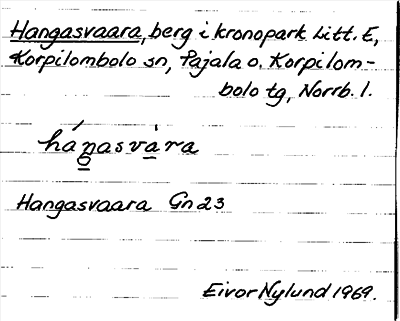 Hangasvaara, berg i kronopark Litt. E,
Korpilombolo sn, Pajala o. Korpilom-
bolo tg, Norrb. l.
háŋasvàra
Hangasvaara Gn 23
Eivor Nylund 1969.